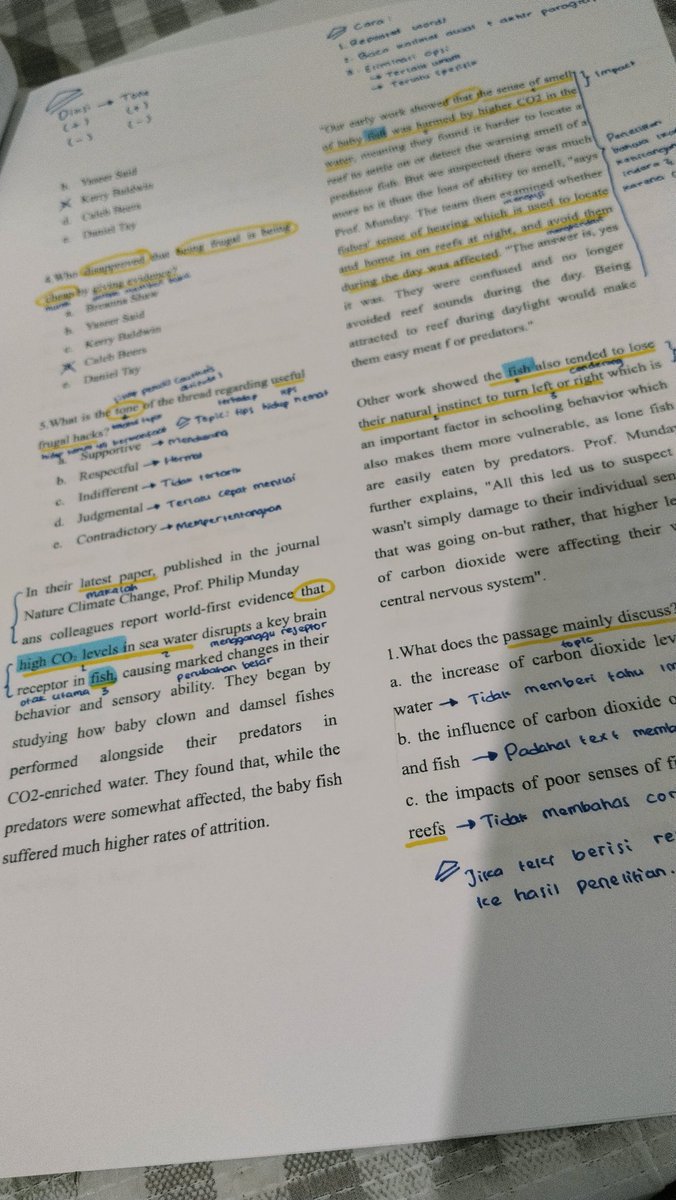 Diksi → Tone
(+) (+)
(-) (-)
b. Yasser Said
c. Kerry Baldwin
d. Caleb Beers
e. Daniel Tay
4.Who disapproved that being frugal is being
cheap by giving evidence?
a. Breanna Shaw
b. Yasser Said
c. Kerry Baldwin
d. Caleb Beers
e. Daniel Tay
5.What is the tone of the thread regarding useful
terhadap
frugal hacks?
Topic: tips hidup hemat
a. Supportive → Mendukung
b. Respectful → Hormat
c. Indifferent → Tidak tertarik
d. Judgmental → Terlalu cepat menilai
e. Contradictory → Mempertentangkan
In their latest paper, published in the journal
makalah
Nature Climate Change, Prof. Philip Munday
ans colleagues report world-first evidence that
high CO₂ levels in sea water disrupts a key brain
1 2 mengganggu reseptor
receptor in fish, causing marked changes in their
otak utama 3 perubahan besar
behavior and sensory ability. They began by
studying how baby clown and damsel fishes
performed alongside their predators in
CO2-enriched water. They found that, while the
predators were somewhat affected, the baby fish
suffered much higher rates of attrition.
Cara:
1. Repeated words
2. Baca kalimat awal + akhir
3. Eliminasi opsi:
→ Terlalu umum
→ Terlalu spesifik
"Our early work showed that the sense of smell
of baby fish was harmed by higher CO2 in the
water, meaning they found it harder to locate a
reef to settle on or detect the warning smell of a
predator fish. But we suspected there was much
more to it than the loss of ability to smell, "says
Prof. Munday. The team then examined whether
menguji
fishes' sense of hearing which is used to locate
and home in on reefs at night, and avoid them
menghindari
during the day was affected. "The answer is, yes
it was. They were confused and no longer
avoided reef sounds during the day. Being
attracted to reef during daylight would make
them easy meat f or predators."
Impact
Penelitian
karena
Other work showed the fish also tended to lose
cenderung
their natural instinct to turn left or right which is
3
an important factor in schooling behavior which
also makes them more vulnerable, as lone fish
are easily eaten by predators. Prof. Munday
further explains, "All this led us to suspect
wasn't simply damage to their individual sen
that was going on-but rather, that higher le
of carbon dioxide were affecting their
central nervous system".
1.What does the passage mainly discuss?
topic
a. the increase of carbon dioxide lev
water → Tidak memberi tahu im
b. the influence of carbon dioxide o
and fish → Padahal text memb
c. the impacts of poor senses of fi
reefs → Tidak membahas cor
Jika teks berisi re
ke hasil penelitian.